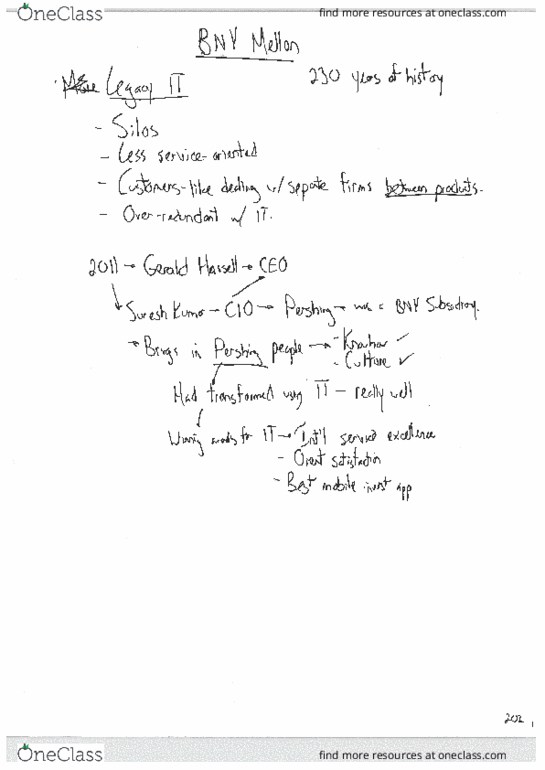 OneClass
find more resources at oneclass.com
BNY Mellon
230 years of history
Legacy IT
- Silos
- Less service-oriented
- Customers-like dealing w/ sepate firms between products.
- Over-redundant w/ IT.
2011 → Gerald Hassell → CEO
Suresh Kumar - CIO → Pershing → was a BNY Subsidiary.
→ Brings in Pershing people → - Knowhow ✓
- Culture ✓
Had transformed using IT - really well
Winning awards for IT → - Int'l service excellence
- Client satisfaction
- Best mobile invest app
202
OneClass
find more resources at oneclass.com